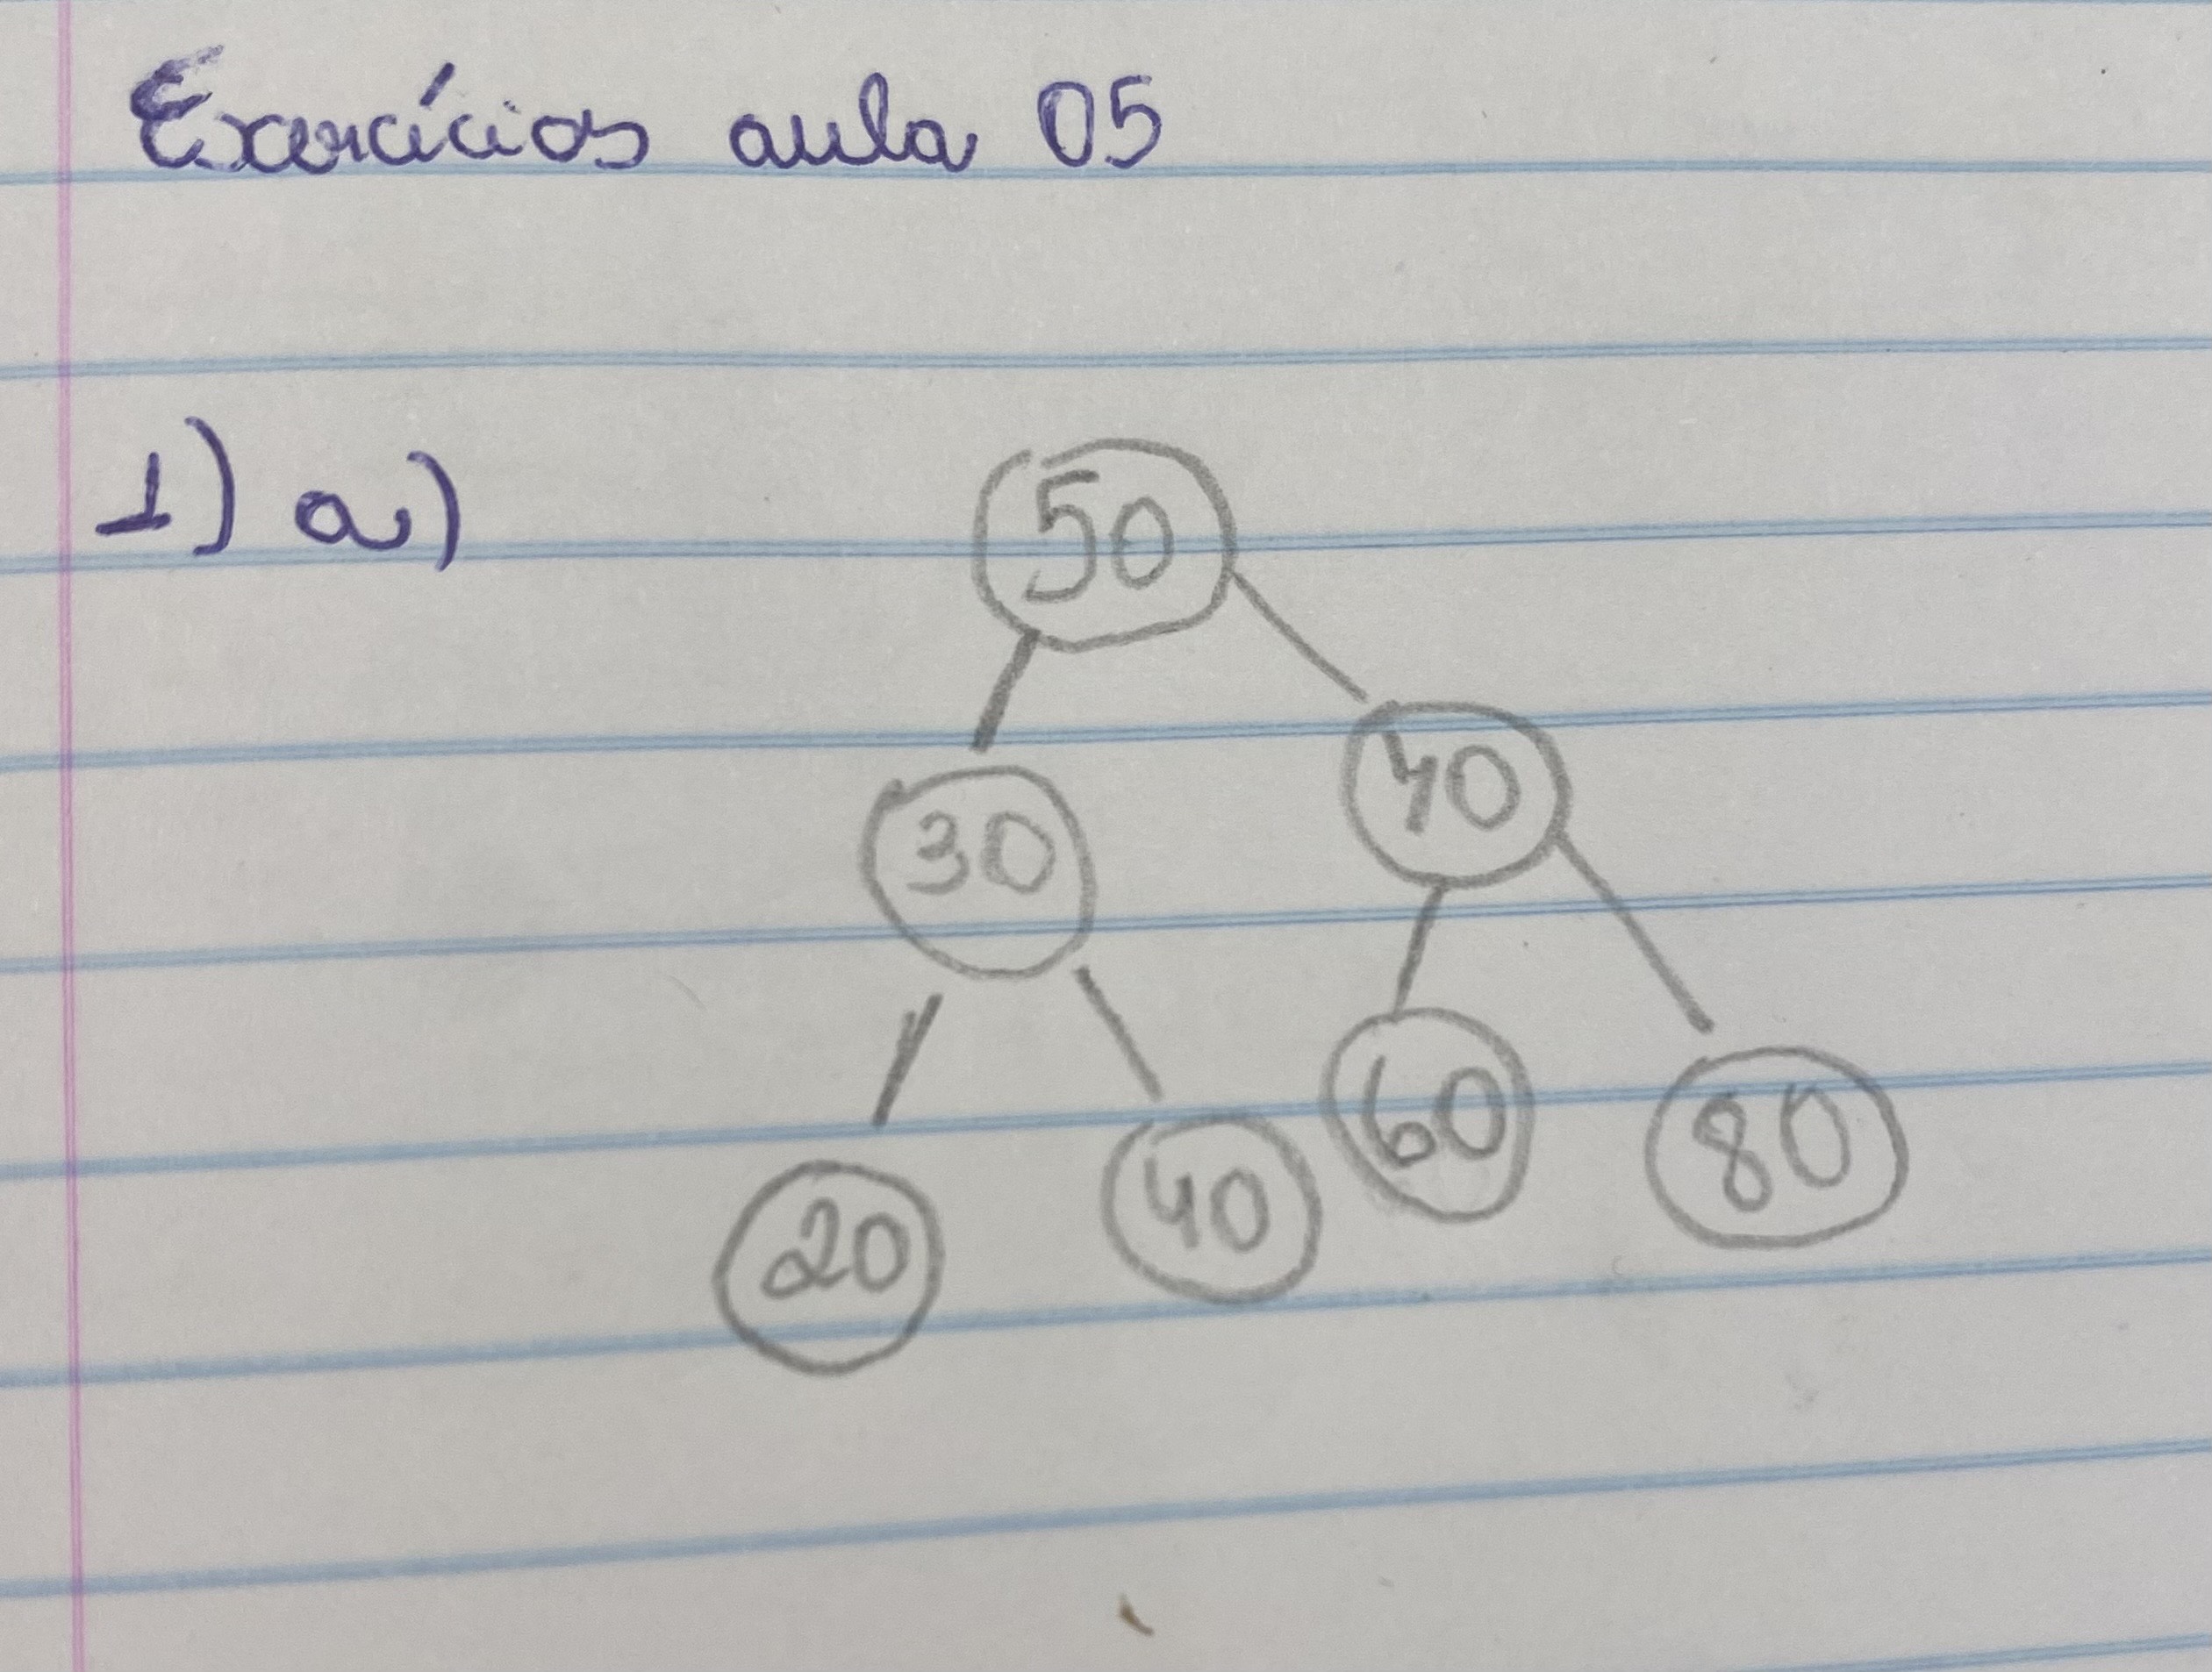 Exercícios aula 05
1) a)
50
30 70
20 40 60 80